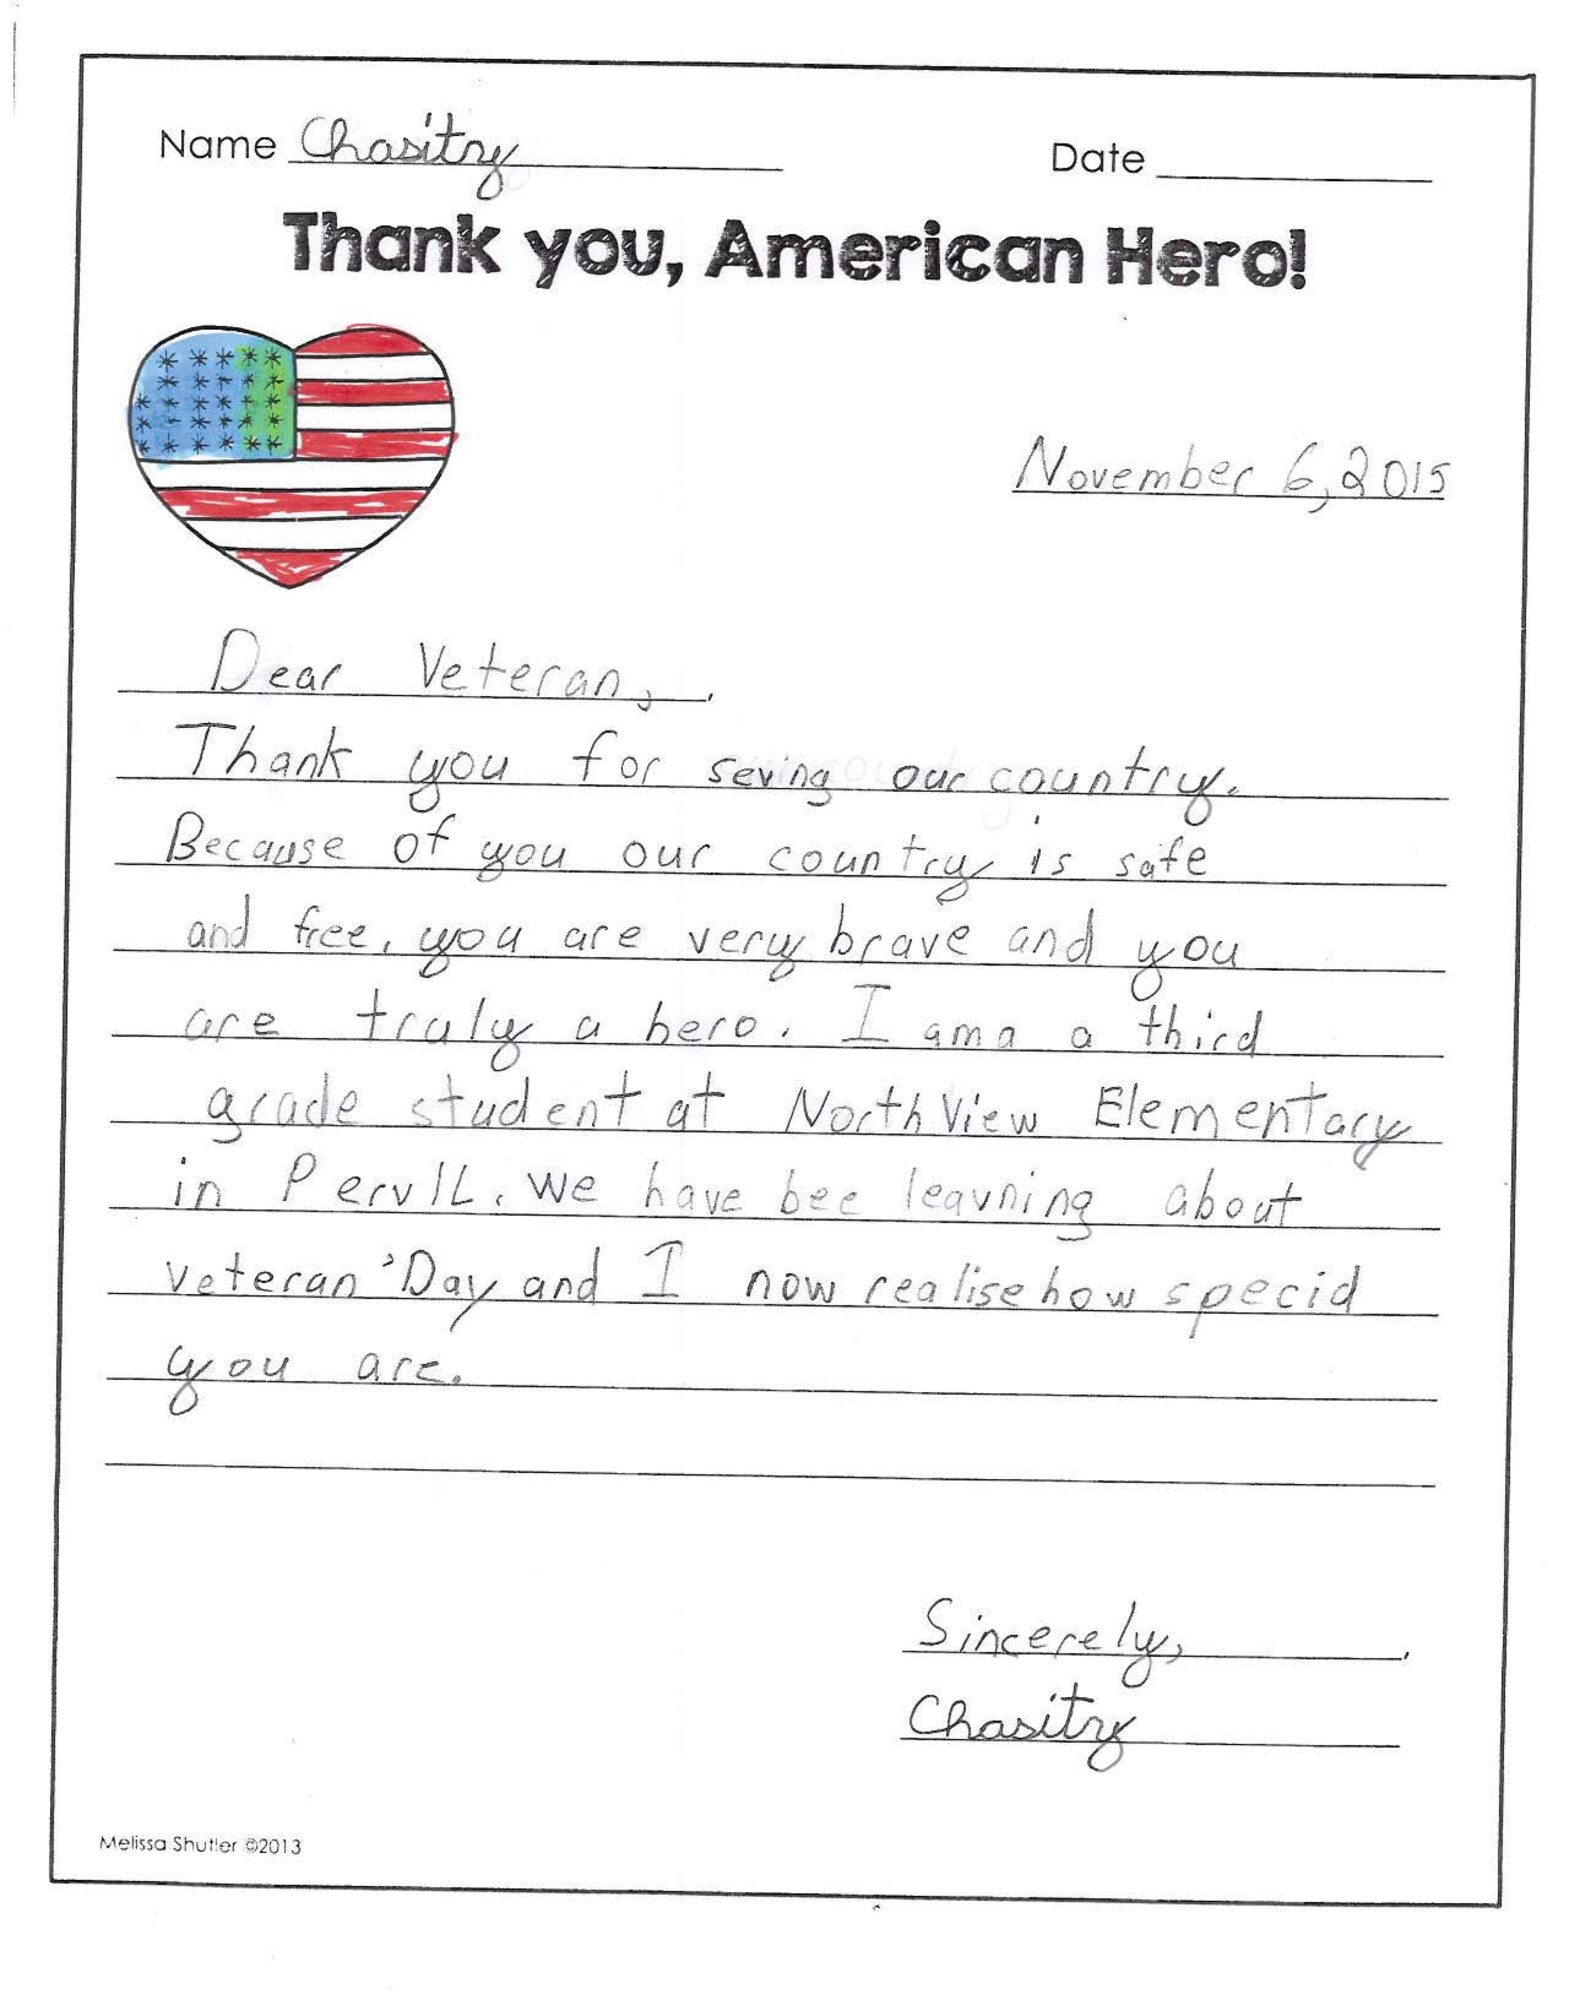 Name Chasitry Date
Thank you, American Hero!
November 6, 2015
Dear Veteran,
Thank you for seving our country.
Because of you our country is safe
and free. you are very brave and you
are truly a hero. I am a a third
grade student at North View Elementary
in Perv IL. We have bee leavning about
veteran 'Day and I now realise how specid
you are.
Sincerely,
Chasitry
Melissa Shutler ©2013